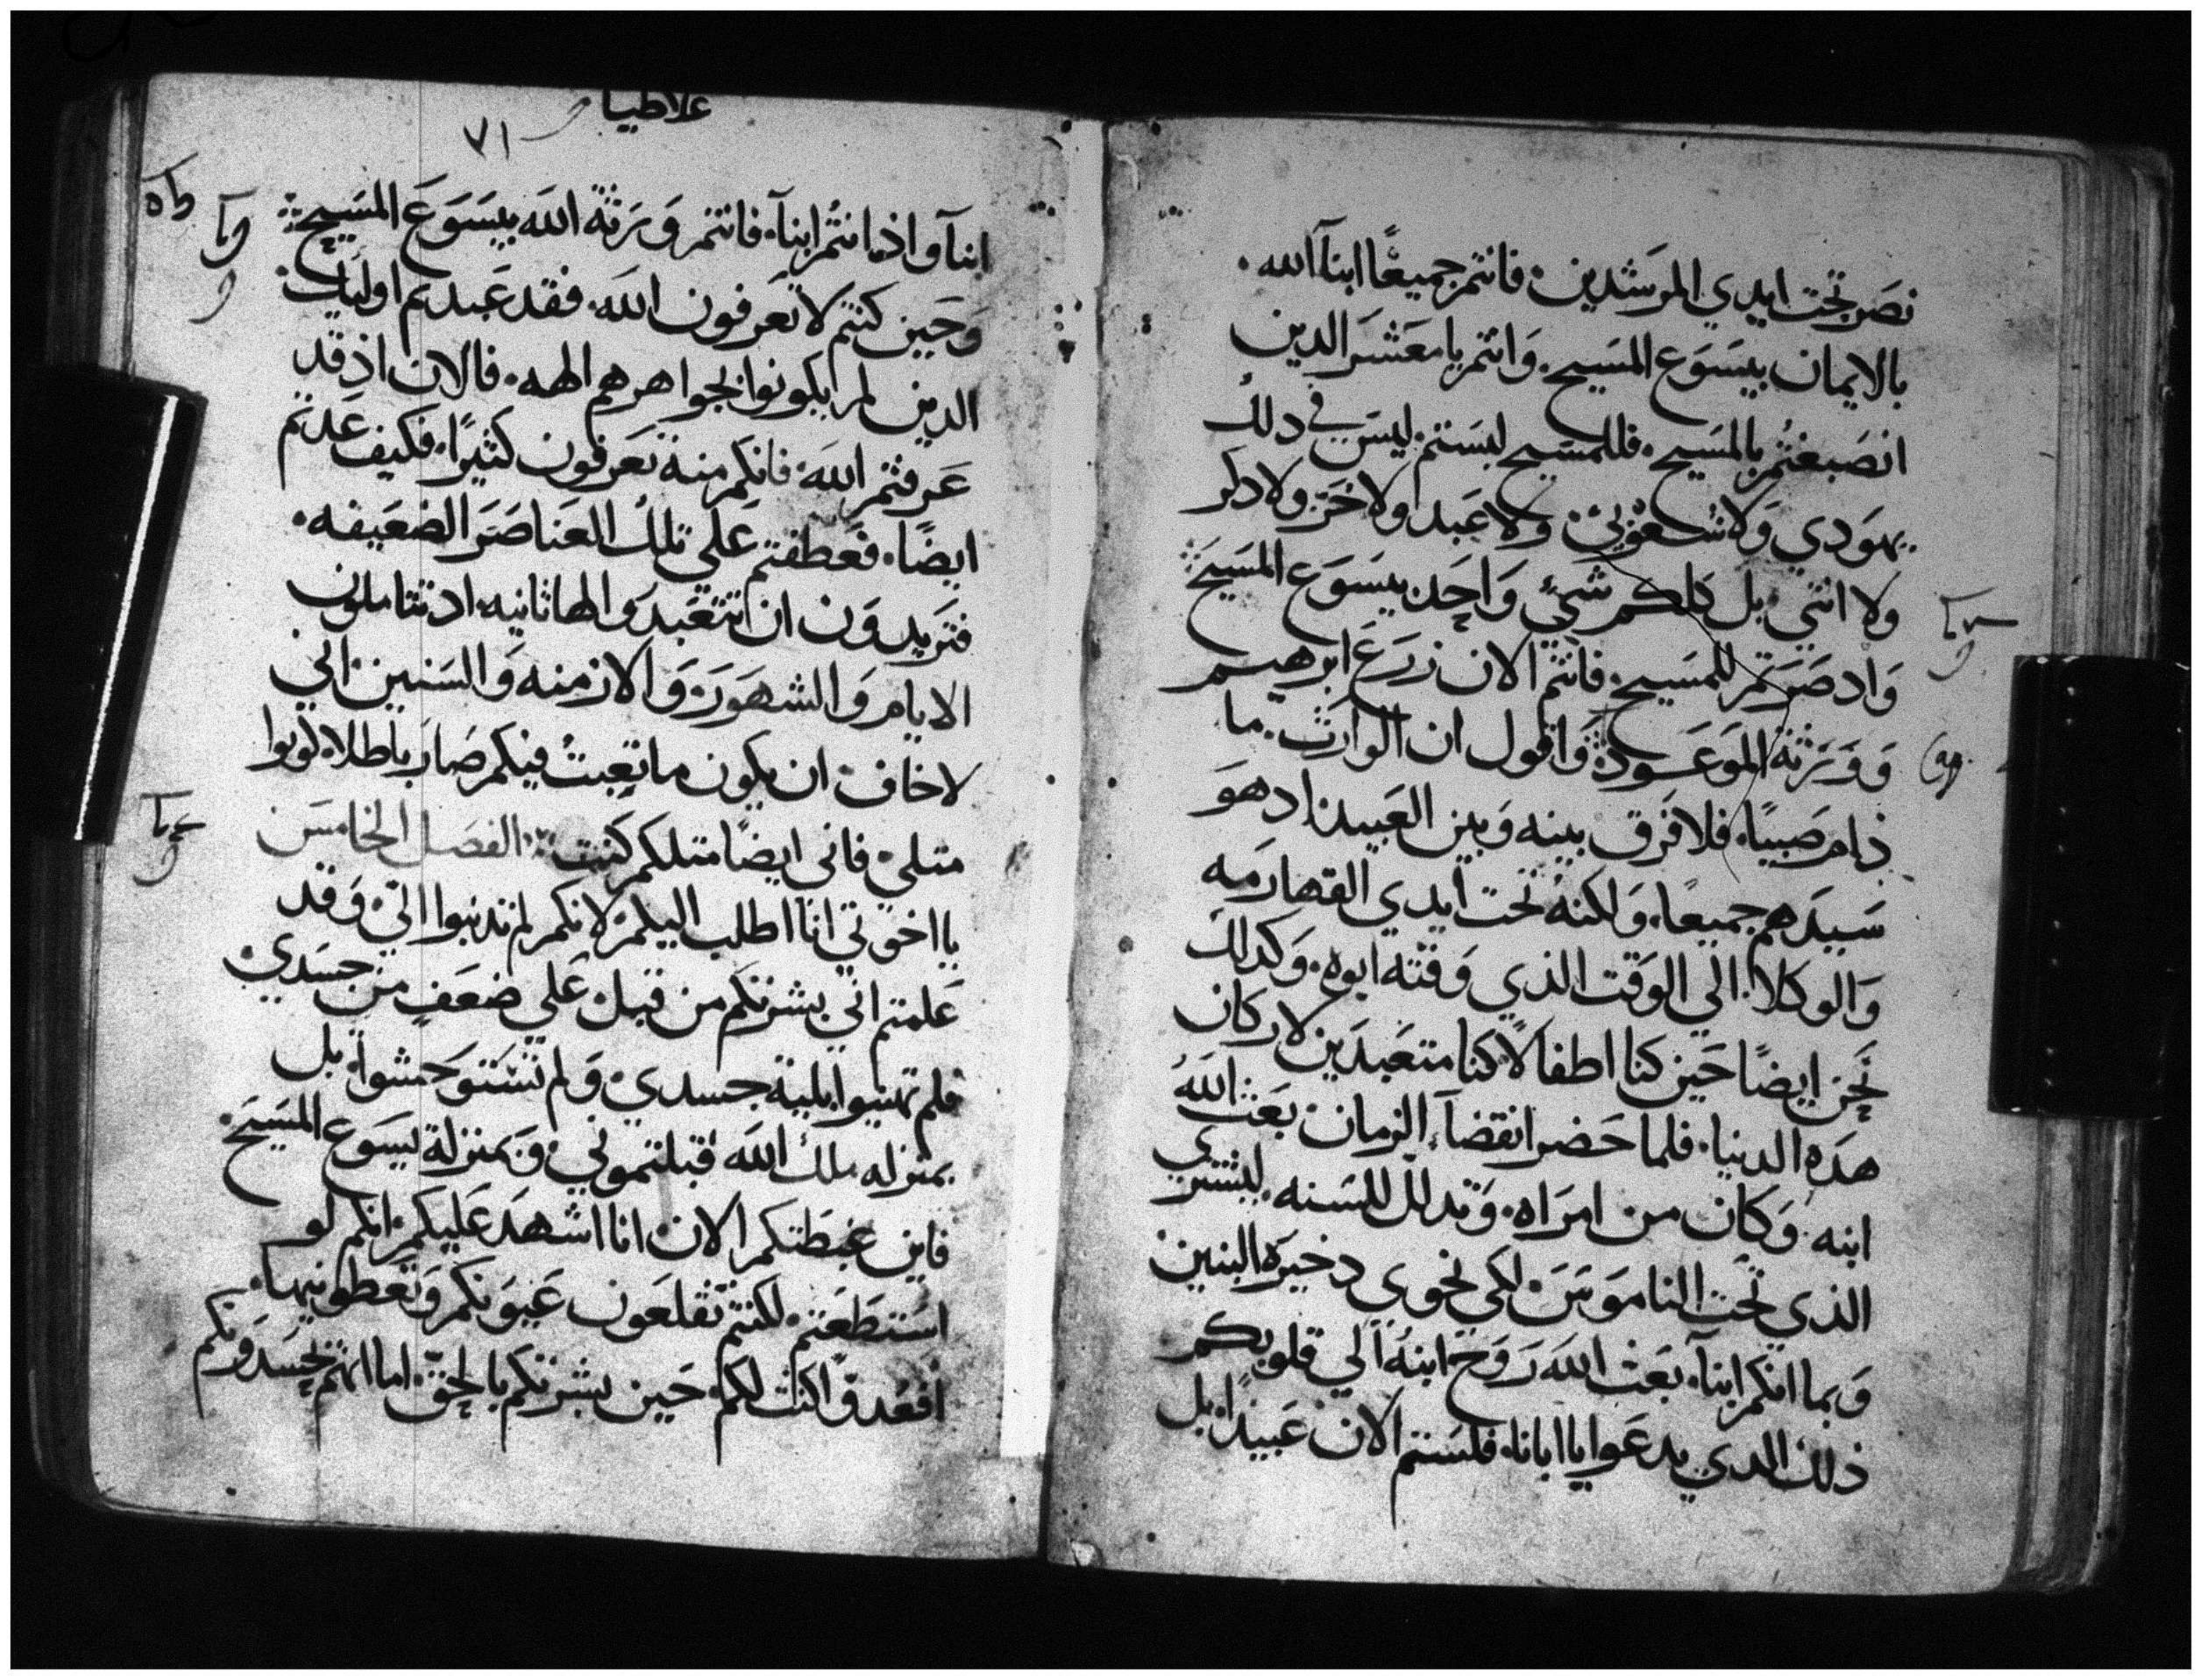 نصر تحت ايدي المرشدين فانتم جميعًا ابنآ الله
بالايمان بيسوع المسيح وانتم يا معشر الدين
انصبغتم بالمسيح فللمسيح لبستم ليس في دلك
يهودي ولا شعوبي ولا عبدا ولا حر ولا دكر
ولا انثي بل كلكم شيئ واحد بيسوع المسيح
واد صرتم للمسيح فانتم الان زرع ابرهيم
وورثة الموعودة واقول ان الوارث ما
دام صبيًا فلا فرق بينه وبين العبيد اد هو
سيدهم جميعا ولكنه تحت ايدي القهارمه
والوكلا الي الوقت الذي وقته ابوه وكدلك
نحن ايضًا حين كنا اطفالًا كنا متعبدين لاركان
هده الدنيا فلما حضر انقضآ الزمان بعث الله
ابنه وكان من امراه وتدلل للسنه ليشتري
الذي تحت الناموس لكي نحوي دخيره البنين
وبما انكم ابنآ بعث الله روح ابنه الي قلوبكم
ذلك الدي يدعوا يا ابانا فلستم الان عبيدًا بل
غلاطيا
٧١
ابنآ واذ انتم ابنآ فانتم ورثة الله بيسوع المسيح
وحين كنتم لا تعرفون الله فقد عبدتم اوليك
الدين لم يكونوا بجواهرهم الهه فالان اذ قد
عرفتم الله فانكم منه تعرفون كثيرًا فكيف عدتم
ايضًا فعطفتم علي تلك العناصر الضعيفه
فتريدون ان تتعبدوا لها ثانيه اد تتاملون
الايام والشهور والازمنه والسنين اني
لاخاف ان يكون ما تعبت فيكم صار باطلا كونوا
متلي فاني ايضًا متلكم كنت الفصل الخامس
يا اخوتي انا اطلب اليكم لانكم لم تدنبوا الي وقد
علمتم اني بشرتكم من قبل علي ضعف من جسدي
فلم تهينوا بلية جسدي ولم تستوحشوا بل
بمنزله ملك الله قبلتموني وبمنزلة يسوع المسيح
فاين غبطتكم الان انا اشهد عليكم انكم لو
استطعتم لكنتم تقلعون عيونكم وتعطونيها
افعدوًا كنت لكم حين بشرتكم بالحق اما انهم يحسدونكم